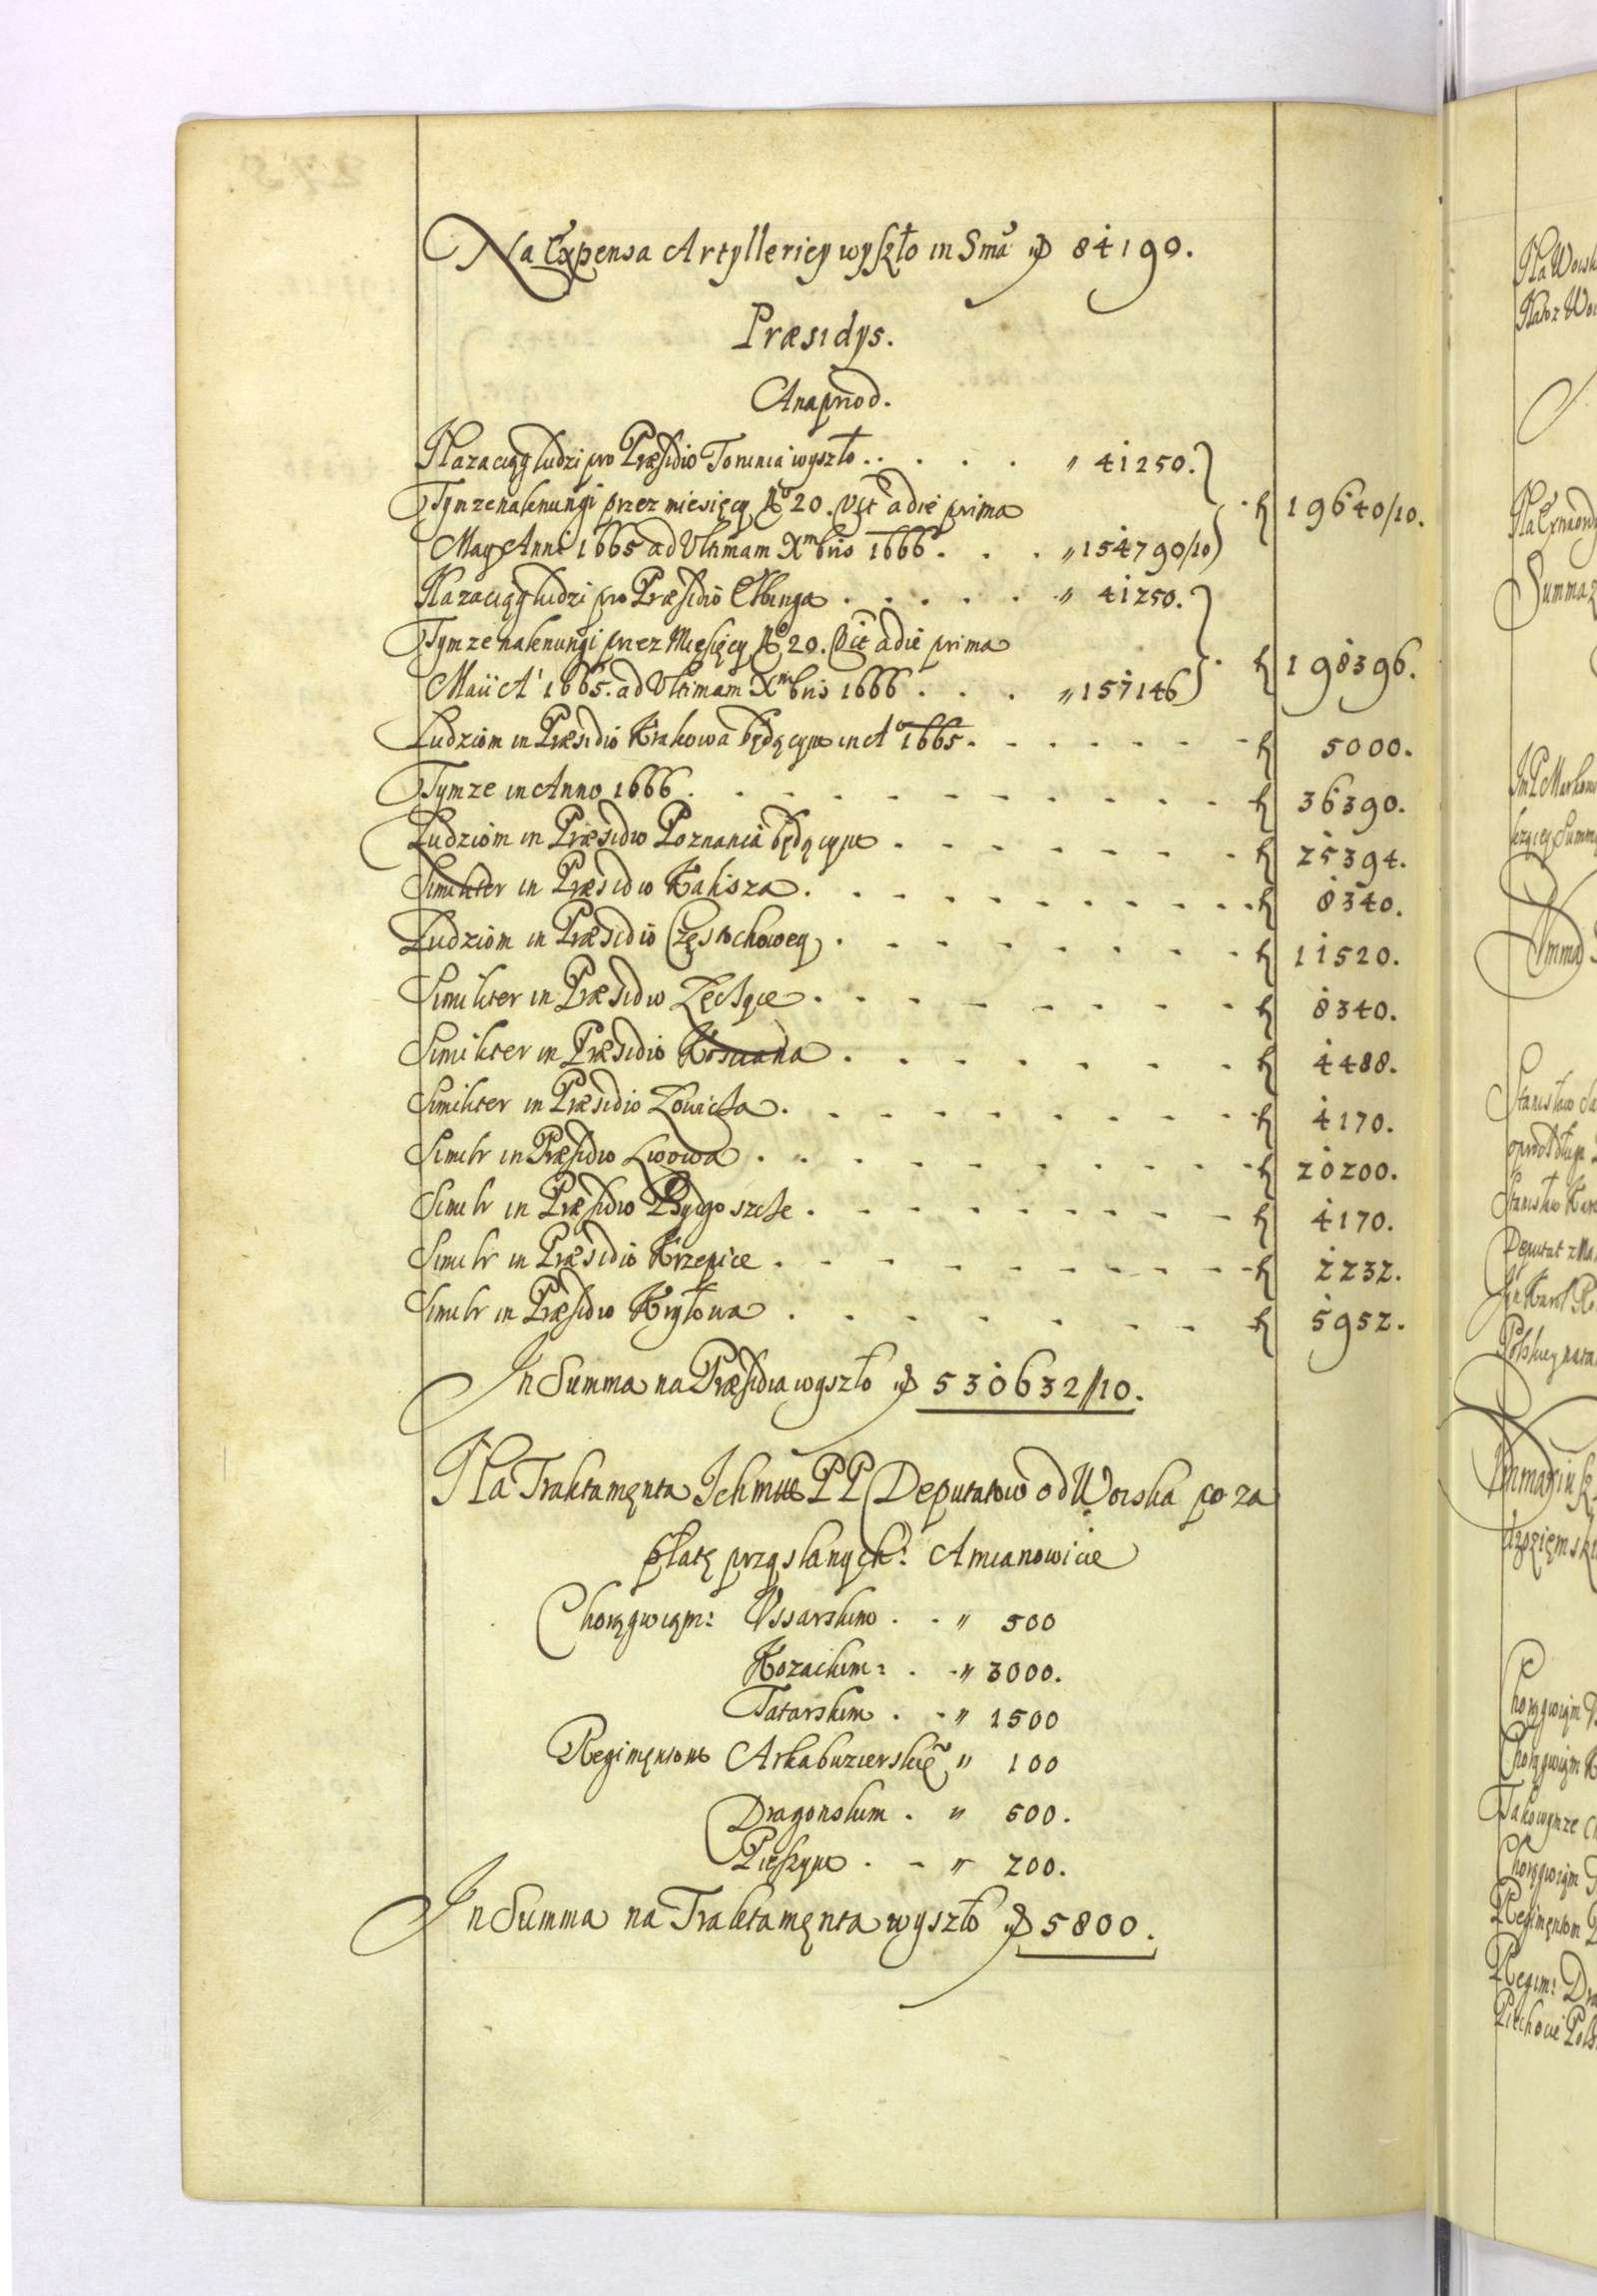 Na Expensa Artylleriey wyszło in Sma fl 84190.
Præsidys.
Anaprzod.
Na zaciąg ludzi pro Præsidio Torunia wyszło . . . . . " 41250.
Tymze na lenungi przez miesięcy No 20. Vit a die prima
May Anni 1665 ad Vltimam Xmbris 1666 . . . " 154790/10 f 19640/10.
Na zaciąg ludzi pro Præsidio Elbinga . . . . . " 41250.
Tymze na lenungi przez Miesięcy No 20. Vit a die prima
Maii A' 1665. ad Vltimam Xmbris 1666 . . . " 157146 f 198396.
Ludziom in Præsidio Krakowa będącym in Ao 1665 . . . . . . f 5000.
Tymze in Anno 1666 . . . . . . . . . . f 36390.
Ludziom in Præsidio Poznania będącym . . . . . . . f 25394.
Similiter in Præsidio Kalisza . . . . . . . . . f 8340.
Ludziom in Præsidio Częstochowey . . . . . . . . f 11520.
Similiter in Præsidio Łęczyce . . . . . . . . f 8340.
Similiter in Præsidio Kosciana . . . . . . . f 4488.
Similiter in Præsidio Łowicza . . . . . . . . f 4170.
Similr in Præsidio Lwowa . . . . . . . . . f 20200.
Similr in Præsidio Bydgoszcze . . . . . . . . f 4170.
Similr in Præsidio Krzepice . . . . . . . . . f 2232.
Similr in Præsidio Kryłowa . . . . . . . f 5952.
In Summa na Præsidia wyszło fl 530632//10.
Na Traktamęnta Ichmm PP Deputatow od Woiska po za
płatę przysłanych: Amianowicie
Chorągwiąm: Vssarskim . . " 500
Kozackim: . . " 3000.
Tatarskim . . " 1500
Regimęntom Arkabuzierskię " 100
Dragonskim . " 500.
Pieszym . . " 200.
In Summa na Traktamęnta wyszło fl 5800.